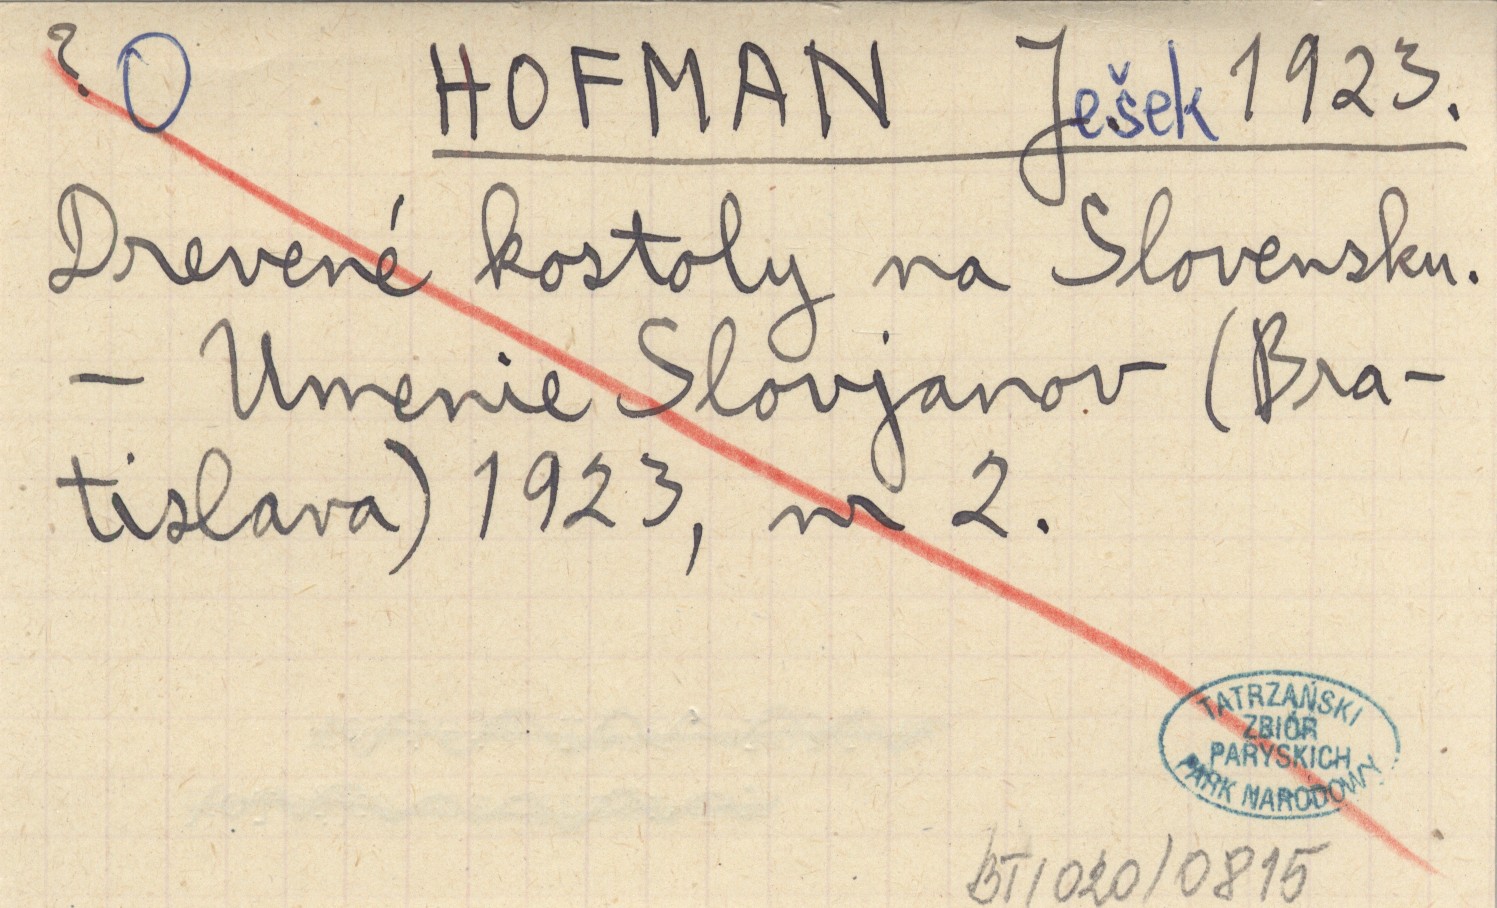 ? O HOFMAN Ješek 1923.
Drevené kostoly na Slovensku.
– Umenie Slovjanov (Bra-
tislava) 1923, nr 2.
TATRZAŃSKI
ZBIÓR
PARYSKICH
PARK NARODOWY
BT/020/0815